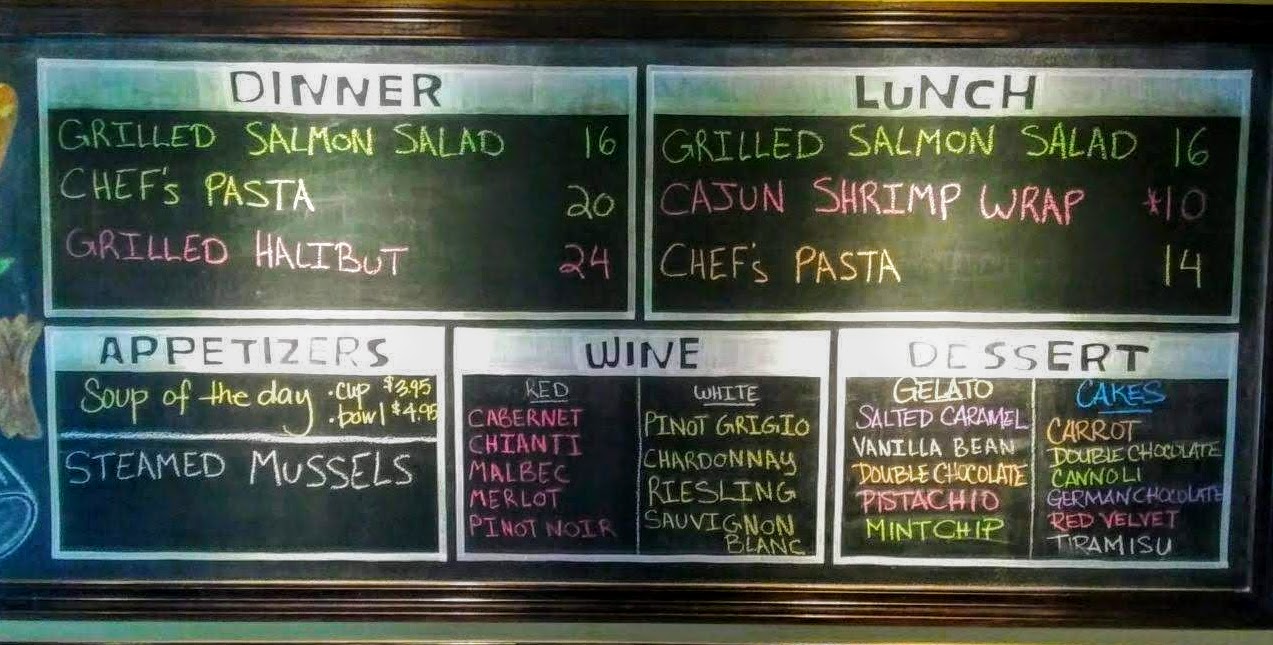 DINNER
GRILLED SALMON SALAD 16
CHEF's PASTA 20
GRILLED HALIBUT 24
LUNCH
GRILLED SALMON SALAD 16
CAJUN SHRIMP WRAP $10
CHEF's PASTA 14
APPETIZERS
Soup of the day .cup $3.95
.bowl $4.95
STEAMED MUSSELS
WINE
RED
CABERNET
CHIANTI
MALBEC
MERLOT
PINOT NOIR
WHITE
PINOT GRIGIO
CHARDONNAY
RIESLING
SAUVIGNON
BLANC
DESSERT
GELATO
SALTED CARAMEL
VANILLA BEAN
DOUBLE CHOCOLATE
PISTACHIO
MINT CHIP
CAKES
CARROT
DOUBLE CHOCOLATE
CANNOLI
GERMAN CHOCOLATE
RED VELVET
TIRAMISU